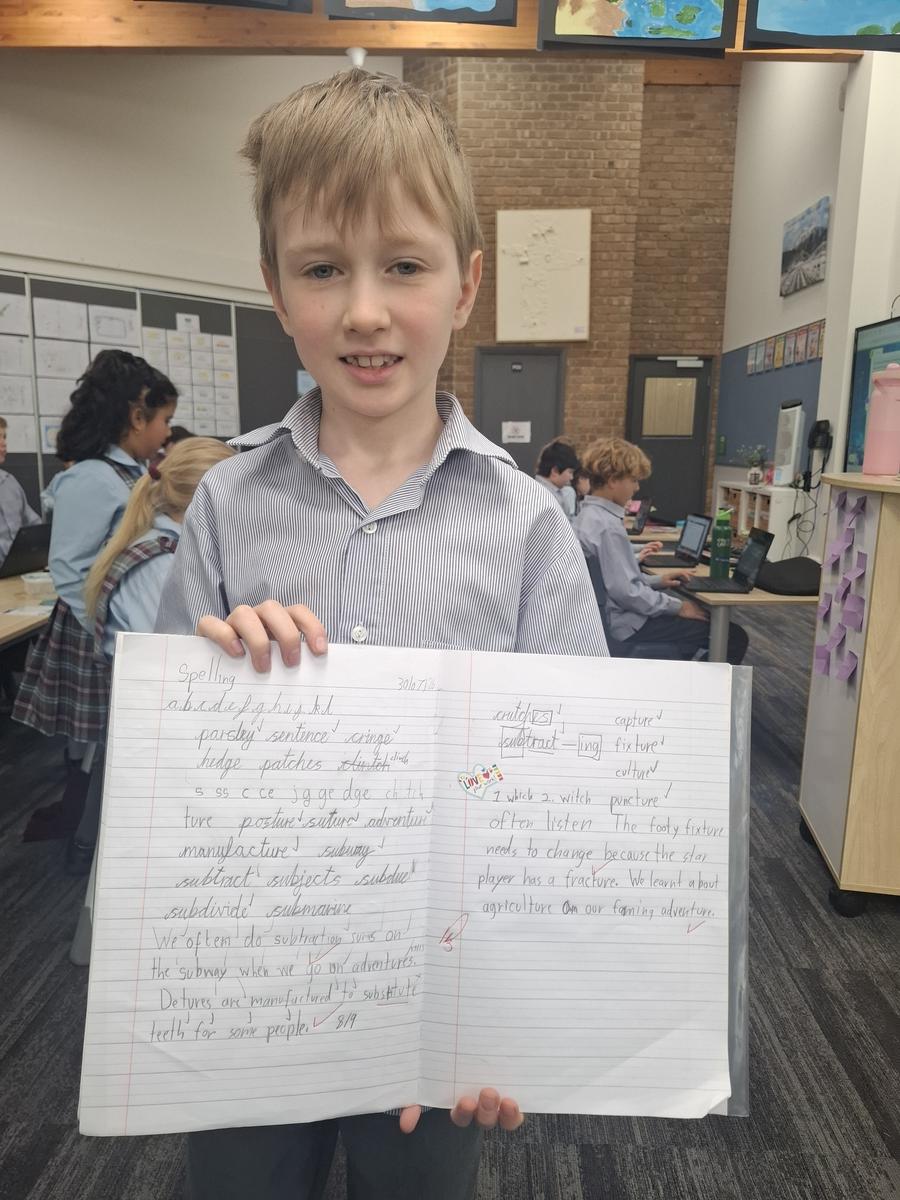 Spelling
a b c d e f g h i j k l
parsley sentence cringe
hedge patches clinch
s ss c ce j g ge dge ch tch
ture posture suture adventure
manufacture subway
subtract subjects subdue
subdivide submarine
We often do subtraction sums on
the subway when we go on adventures.
Detures are manufactured to substitute
teeth for some people. 8/9
crutches capture
subtract – ing fixture
culture
1. which 2. witch puncture
often listen The footy fixture
needs to change because the star
player has a fracture. We learnt about
agriculture on our farming adventure.